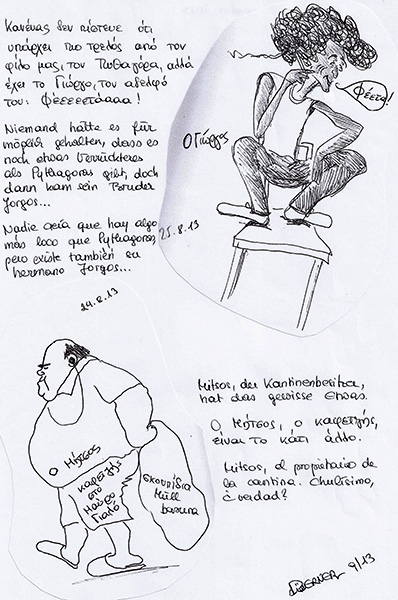 Κανένας δεν πίστευε ότι
υπάρχει πιο τρελός από τον
φίλο μας, τον Πυθαγόρα, αλλά
έχει το Γιώργο, τον αδελφό
του: Φέεεεστάααα!
Niemand hätte es für
möglich gehalten, dass es
noch etwas Verrückteres
als Pythagoras gibt, doch
dann kam sein Bruder
Jorgos...
Nadie creía que hay algo
más loco que Pythagoras,
pero existe también su
hermano Jorgos...
25.8.13
Ο Γιώργος
Φέστα!
24.8.13
Μήτσος
καφετζής
στο
Μαύρο
Γιαλό
σκουπίδια
Müll
basura
Mitsos, der Kantinenbesitzer,
hat das gewisse Etwas.
Ο Μήτσος, ο καφετζής,
είναι το κάτι άλλο.
Mitsos, el proprietario de
la cantina. Chulísimo,
¿verdad?
9/13